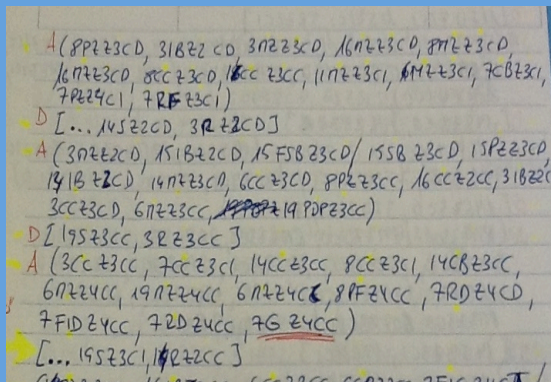 A (8PZZ3CD, 31BZ2CD, 3ΠZZ3CD, 16ΠZZ3CD, 8ΠZZ3CD,
16ΠZZ3CD, 8CCZ3CD, 16CCZ3CC, 11ΠZZ3C1, 6MZZ3C1, 7CBZ3C1,
7PZZ4C1, 7RFZ3C1)
D [... 14SZ2CD, 3RZ2CD]
A (3ΠZZ2CD, 151BZ2CD, 15FSBZ3CD/ 15SBZ3CD, 15PZZ3CD,
141BZ2CD, 14ΠZZ3CD, 6CCZ3CD, 8PZZ3CC, 16CCZ2CC, 31BZ2C
3CCZ3CD, 6ΠZZ3CC, 19PDPZ3CC)
D [19SZ3CC, 3RZ3CC]
A (3CCZ3CC, 7CCZ3C1, 14CCZ3CC, 8CCZ3C1, 14CBZ3CC,
6ΠZZ4CC, 19ΠZZ4CC, 6ΠZZ4CC, 8PFZ4CC, 7RDZ4CD,
7F1DZ4CC, 7RDZ4CC, 7GZ4CC)
[... 19SZ3C1, RZ2CC]